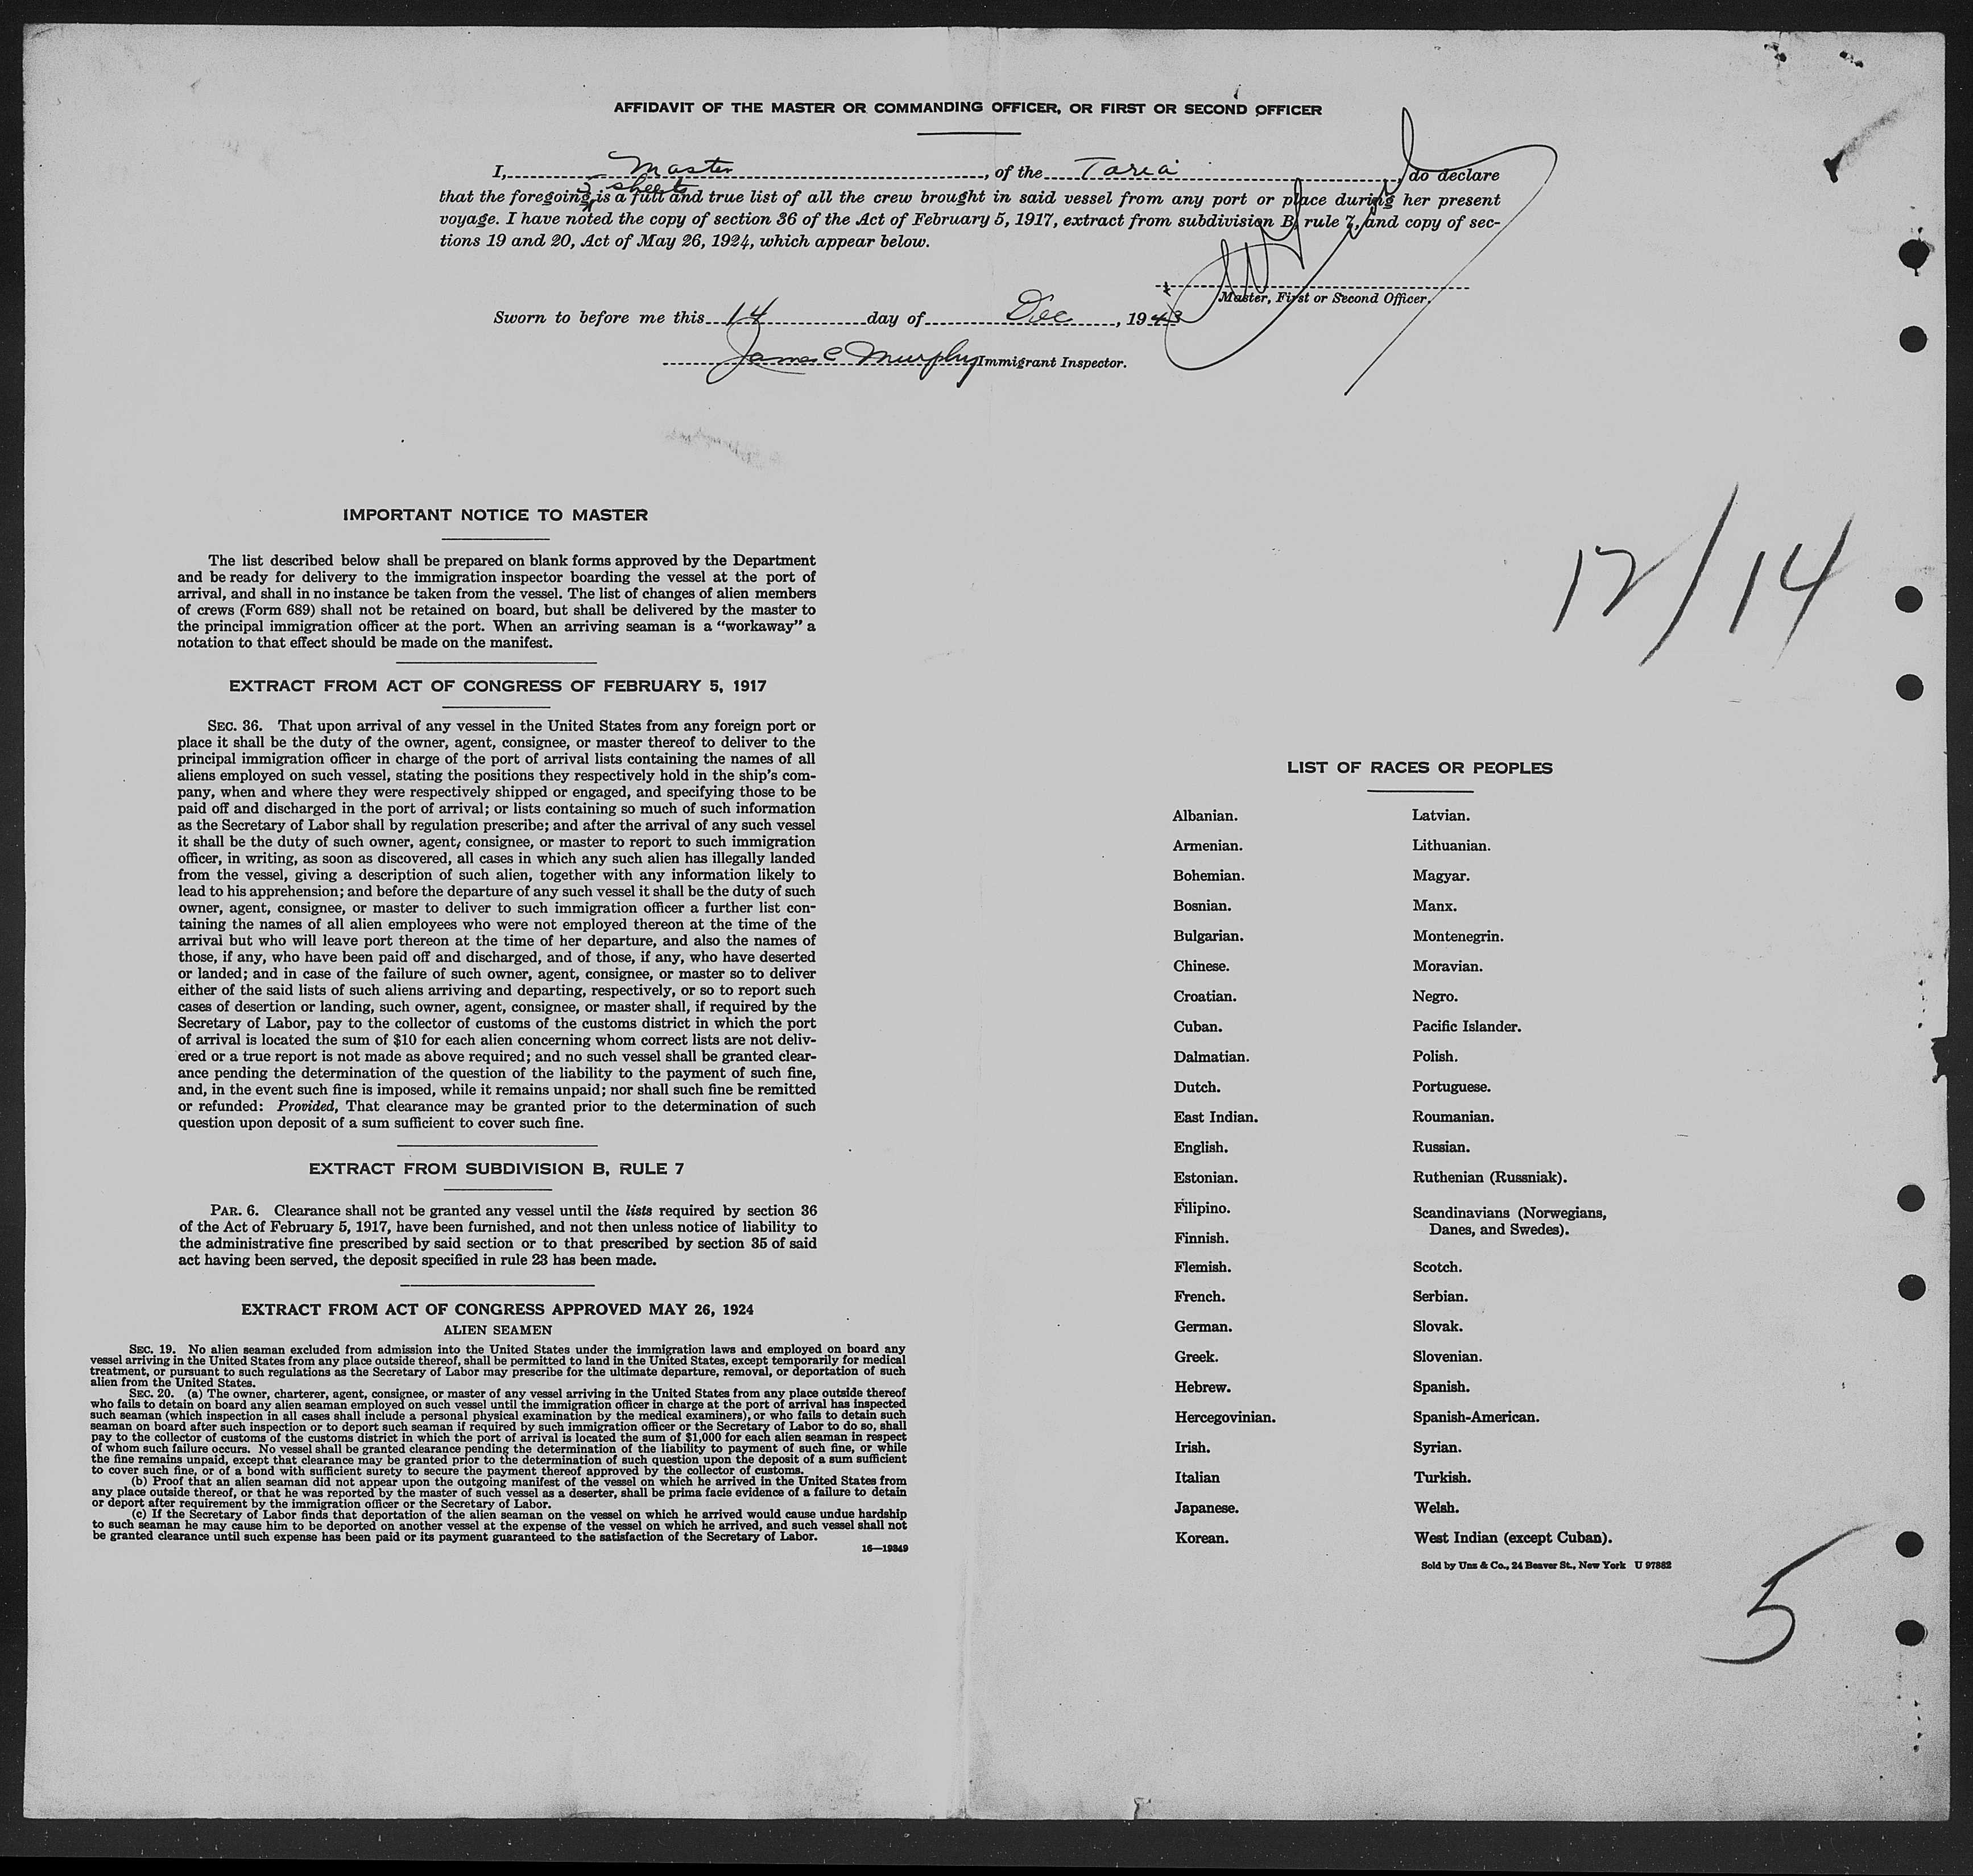 AFFIDAVIT OF THE MASTER OR COMMANDING OFFICER, OR FIRST OR SECOND OFFICER
I, Master, of the Taria, do declare
5 sheets
that the foregoing is a full and true list of all the crew brought in said vessel from any port or place during her present
voyage. I have noted the copy of section 36 of the Act of February 5, 1917, extract from subdivision B, rule 7, and copy of sec-
tions 19 and 20, Act of May 26, 1924, which appear below.
Master, First or Second Officer.
Sworn to before me this 14 day of Dec, 1943
James C Murphy Immigrant Inspector.
12/14
IMPORTANT NOTICE TO MASTER
The list described below shall be prepared on blank forms approved by the Department
and be ready for delivery to the immigration inspector boarding the vessel at the port of
arrival, and shall in no instance be taken from the vessel. The list of changes of alien members
of crews (Form 689) shall not be retained on board, but shall be delivered by the master to
the principal immigration officer at the port. When an arriving seaman is a "workaway" a
notation to that effect should be made on the manifest.
EXTRACT FROM ACT OF CONGRESS OF FEBRUARY 5, 1917
SEC. 36. That upon arrival of any vessel in the United States from any foreign port or
place it shall be the duty of the owner, agent, consignee, or master thereof to deliver to the
principal immigration officer in charge of the port of arrival lists containing the names of all
aliens employed on such vessel, stating the positions they respectively hold in the ship's com-
pany, when and where they were respectively shipped or engaged, and specifying those to be
paid off and discharged in the port of arrival; or lists containing so much of such information
as the Secretary of Labor shall by regulation prescribe; and after the arrival of any such vessel
it shall be the duty of such owner, agent, consignee, or master to report to such immigration
officer, in writing, as soon as discovered, all cases in which any such alien has illegally landed
from the vessel, giving a description of such alien, together with any information likely to
lead to his apprehension; and before the departure of any such vessel it shall be the duty of such
owner, agent, consignee, or master to deliver to such immigration officer a further list con-
taining the names of all alien employees who were not employed thereon at the time of the
arrival but who will leave port thereon at the time of her departure, and also the names of
those, if any, who have been paid off and discharged, and of those, if any, who have deserted
or landed; and in case of the failure of such owner, agent, consignee, or master so to deliver
either of the said lists of such aliens arriving and departing, respectively, or so to report such
cases of desertion or landing, such owner, agent, consignee, or master shall, if required by the
Secretary of Labor, pay to the collector of customs of the customs district in which the port
of arrival is located the sum of $10 for each alien concerning whom correct lists are not deliv-
ered or a true report is not made as above required; and no such vessel shall be granted clear-
ance pending the determination of the question of the liability to the payment of such fine,
and, in the event such fine is imposed, while it remains unpaid; nor shall such fine be remitted
or refunded: Provided, That clearance may be granted prior to the determination of such
question upon deposit of a sum sufficient to cover such fine.
EXTRACT FROM SUBDIVISION B, RULE 7
PAR. 6. Clearance shall not be granted any vessel until the lists required by section 36
of the Act of February 5, 1917, have been furnished, and not then unless notice of liability to
the administrative fine prescribed by said section or to that prescribed by section 35 of said
act having been served, the deposit specified in rule 23 has been made.
EXTRACT FROM ACT OF CONGRESS APPROVED MAY 26, 1924
ALIEN SEAMEN
SEC. 19. No alien seaman excluded from admission into the United States under the immigration laws and employed on board any
vessel arriving in the United States from any place outside thereof, shall be permitted to land in the United States, except temporarily for medical
treatment, or pursuant to such regulations as the Secretary of Labor may prescribe for the ultimate departure, removal, or deportation of such
alien from the United States.
SEC. 20. (a) The owner, charterer, agent, consignee, or master of any vessel arriving in the United States from any place outside thereof
who fails to detain on board any alien seaman employed on such vessel until the immigration officer in charge at the port of arrival has inspected
such seaman (which inspection in all cases shall include a personal physical examination by the medical examiners), or who fails to detain such
seaman on board after such inspection or to deport such seaman if required by such immigration officer or the Secretary of Labor to do so, shall
pay to the collector of customs of the customs district in which the port of arrival is located the sum of $1,000 for each alien seaman in respect
of whom such failure occurs. No vessel shall be granted clearance pending the determination of the liability to payment of such fine, or while
the fine remains unpaid, except that clearance may be granted prior to the determination of such question upon the deposit of a sum sufficient
to cover such fine, or of a bond with sufficient surety to secure the payment thereof approved by the collector of customs.
(b) Proof that an alien seaman did not appear upon the outgoing manifest of the vessel on which he arrived in the United States from
any place outside thereof, or that he was reported by the master of such vessel as a deserter, shall be prima facie evidence of a failure to detain
or deport after requirement by the immigration officer or the Secretary of Labor.
(c) If the Secretary of Labor finds that deportation of the alien seaman on the vessel on which he arrived would cause undue hardship
to such seaman he may cause him to be deported on another vessel at the expense of the vessel on which he arrived, and such vessel shall not
be granted clearance until such expense has been paid or its payment guaranteed to the satisfaction of the Secretary of Labor.
16—19849
LIST OF RACES OR PEOPLES
Albanian.
Armenian.
Bohemian.
Bosnian.
Bulgarian.
Chinese.
Croatian.
Cuban.
Dalmatian.
Dutch.
East Indian.
English.
Estonian.
Filipino.
Finnish.
Flemish.
French.
German.
Greek.
Hebrew.
Hercegovinian.
Irish.
Italian
Japanese.
Korean.
Latvian.
Lithuanian.
Magyar.
Manx.
Montenegrin.
Moravian.
Negro.
Pacific Islander.
Polish.
Portuguese.
Roumanian.
Russian.
Ruthenian (Russniak).
Scandinavians (Norwegians,
Danes, and Swedes).
Scotch.
Serbian.
Slovak.
Slovenian.
Spanish.
Spanish-American.
Syrian.
Turkish.
Welsh.
West Indian (except Cuban).
Sold by Unz & Co., 24 Beaver St., New York U 97882
5